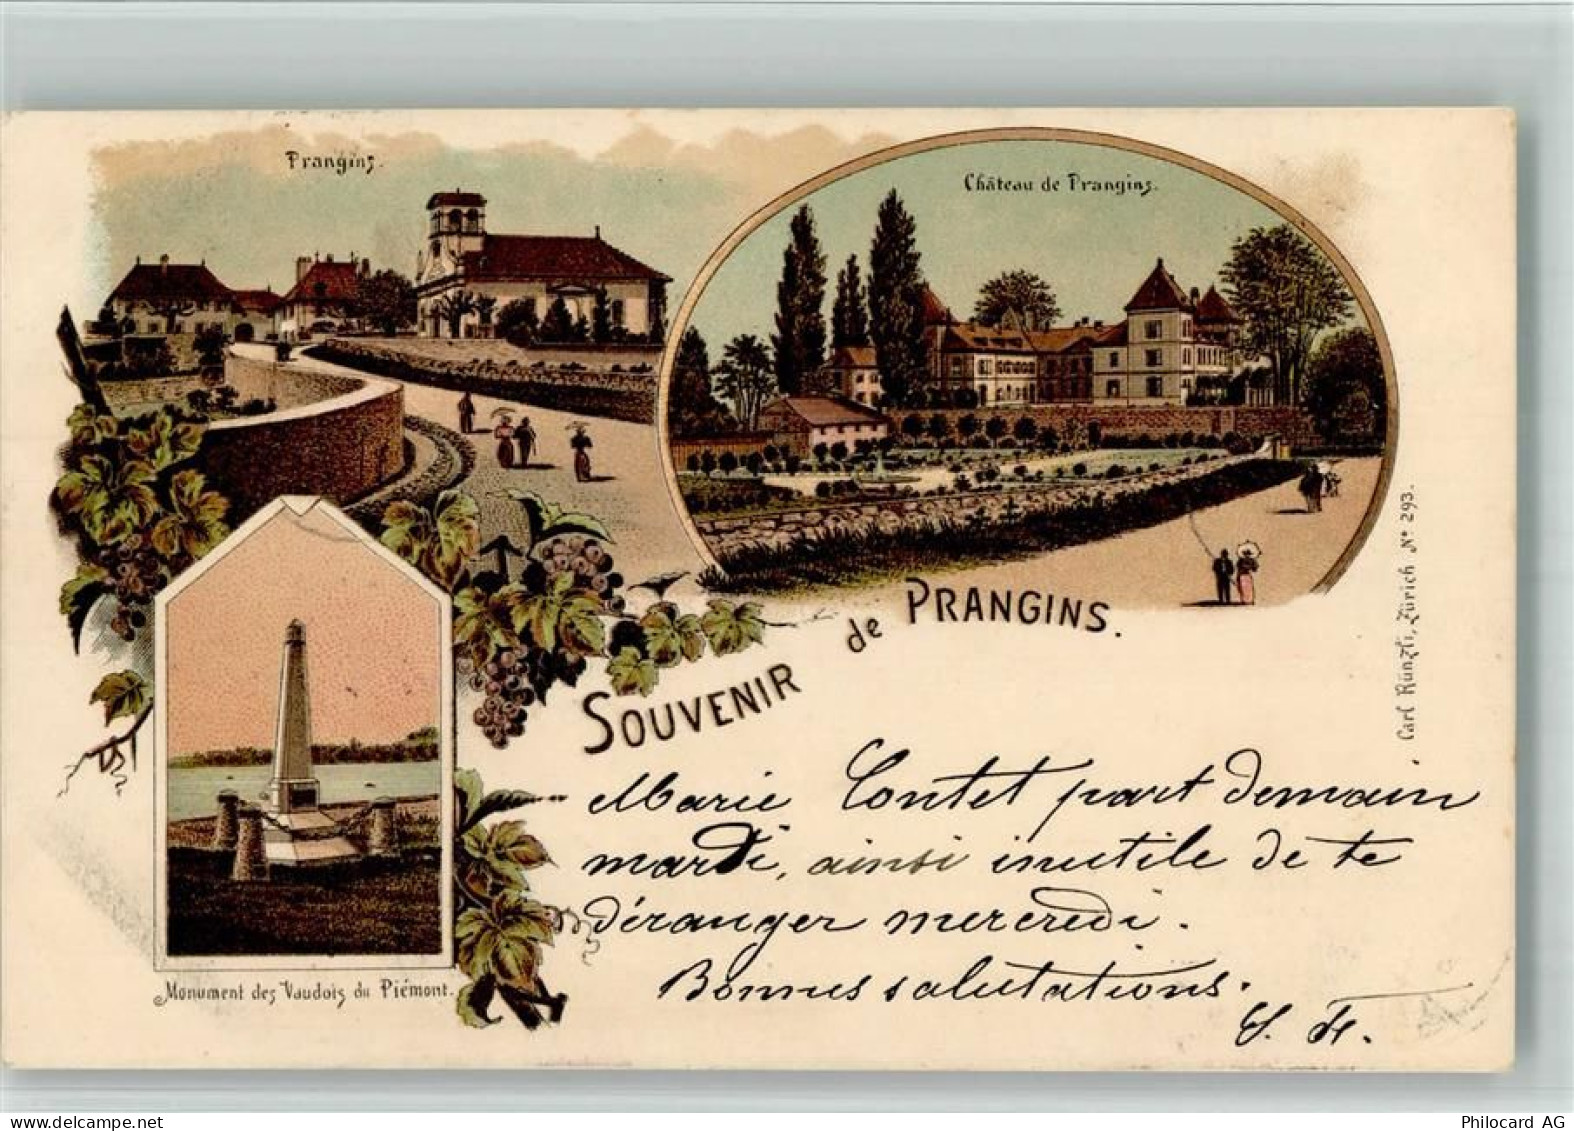 Prangins.
Château de Prangins.
SOUVENIR de PRANGINS.
Monument des Vaudois du Piémont.
Carl Künzli, Zürich No 293.
Marie Contet part demain
mardi, ainsi inutile de te
déranger mercredi.
Bonnes salutations.
delcampe.net
Philocard AG